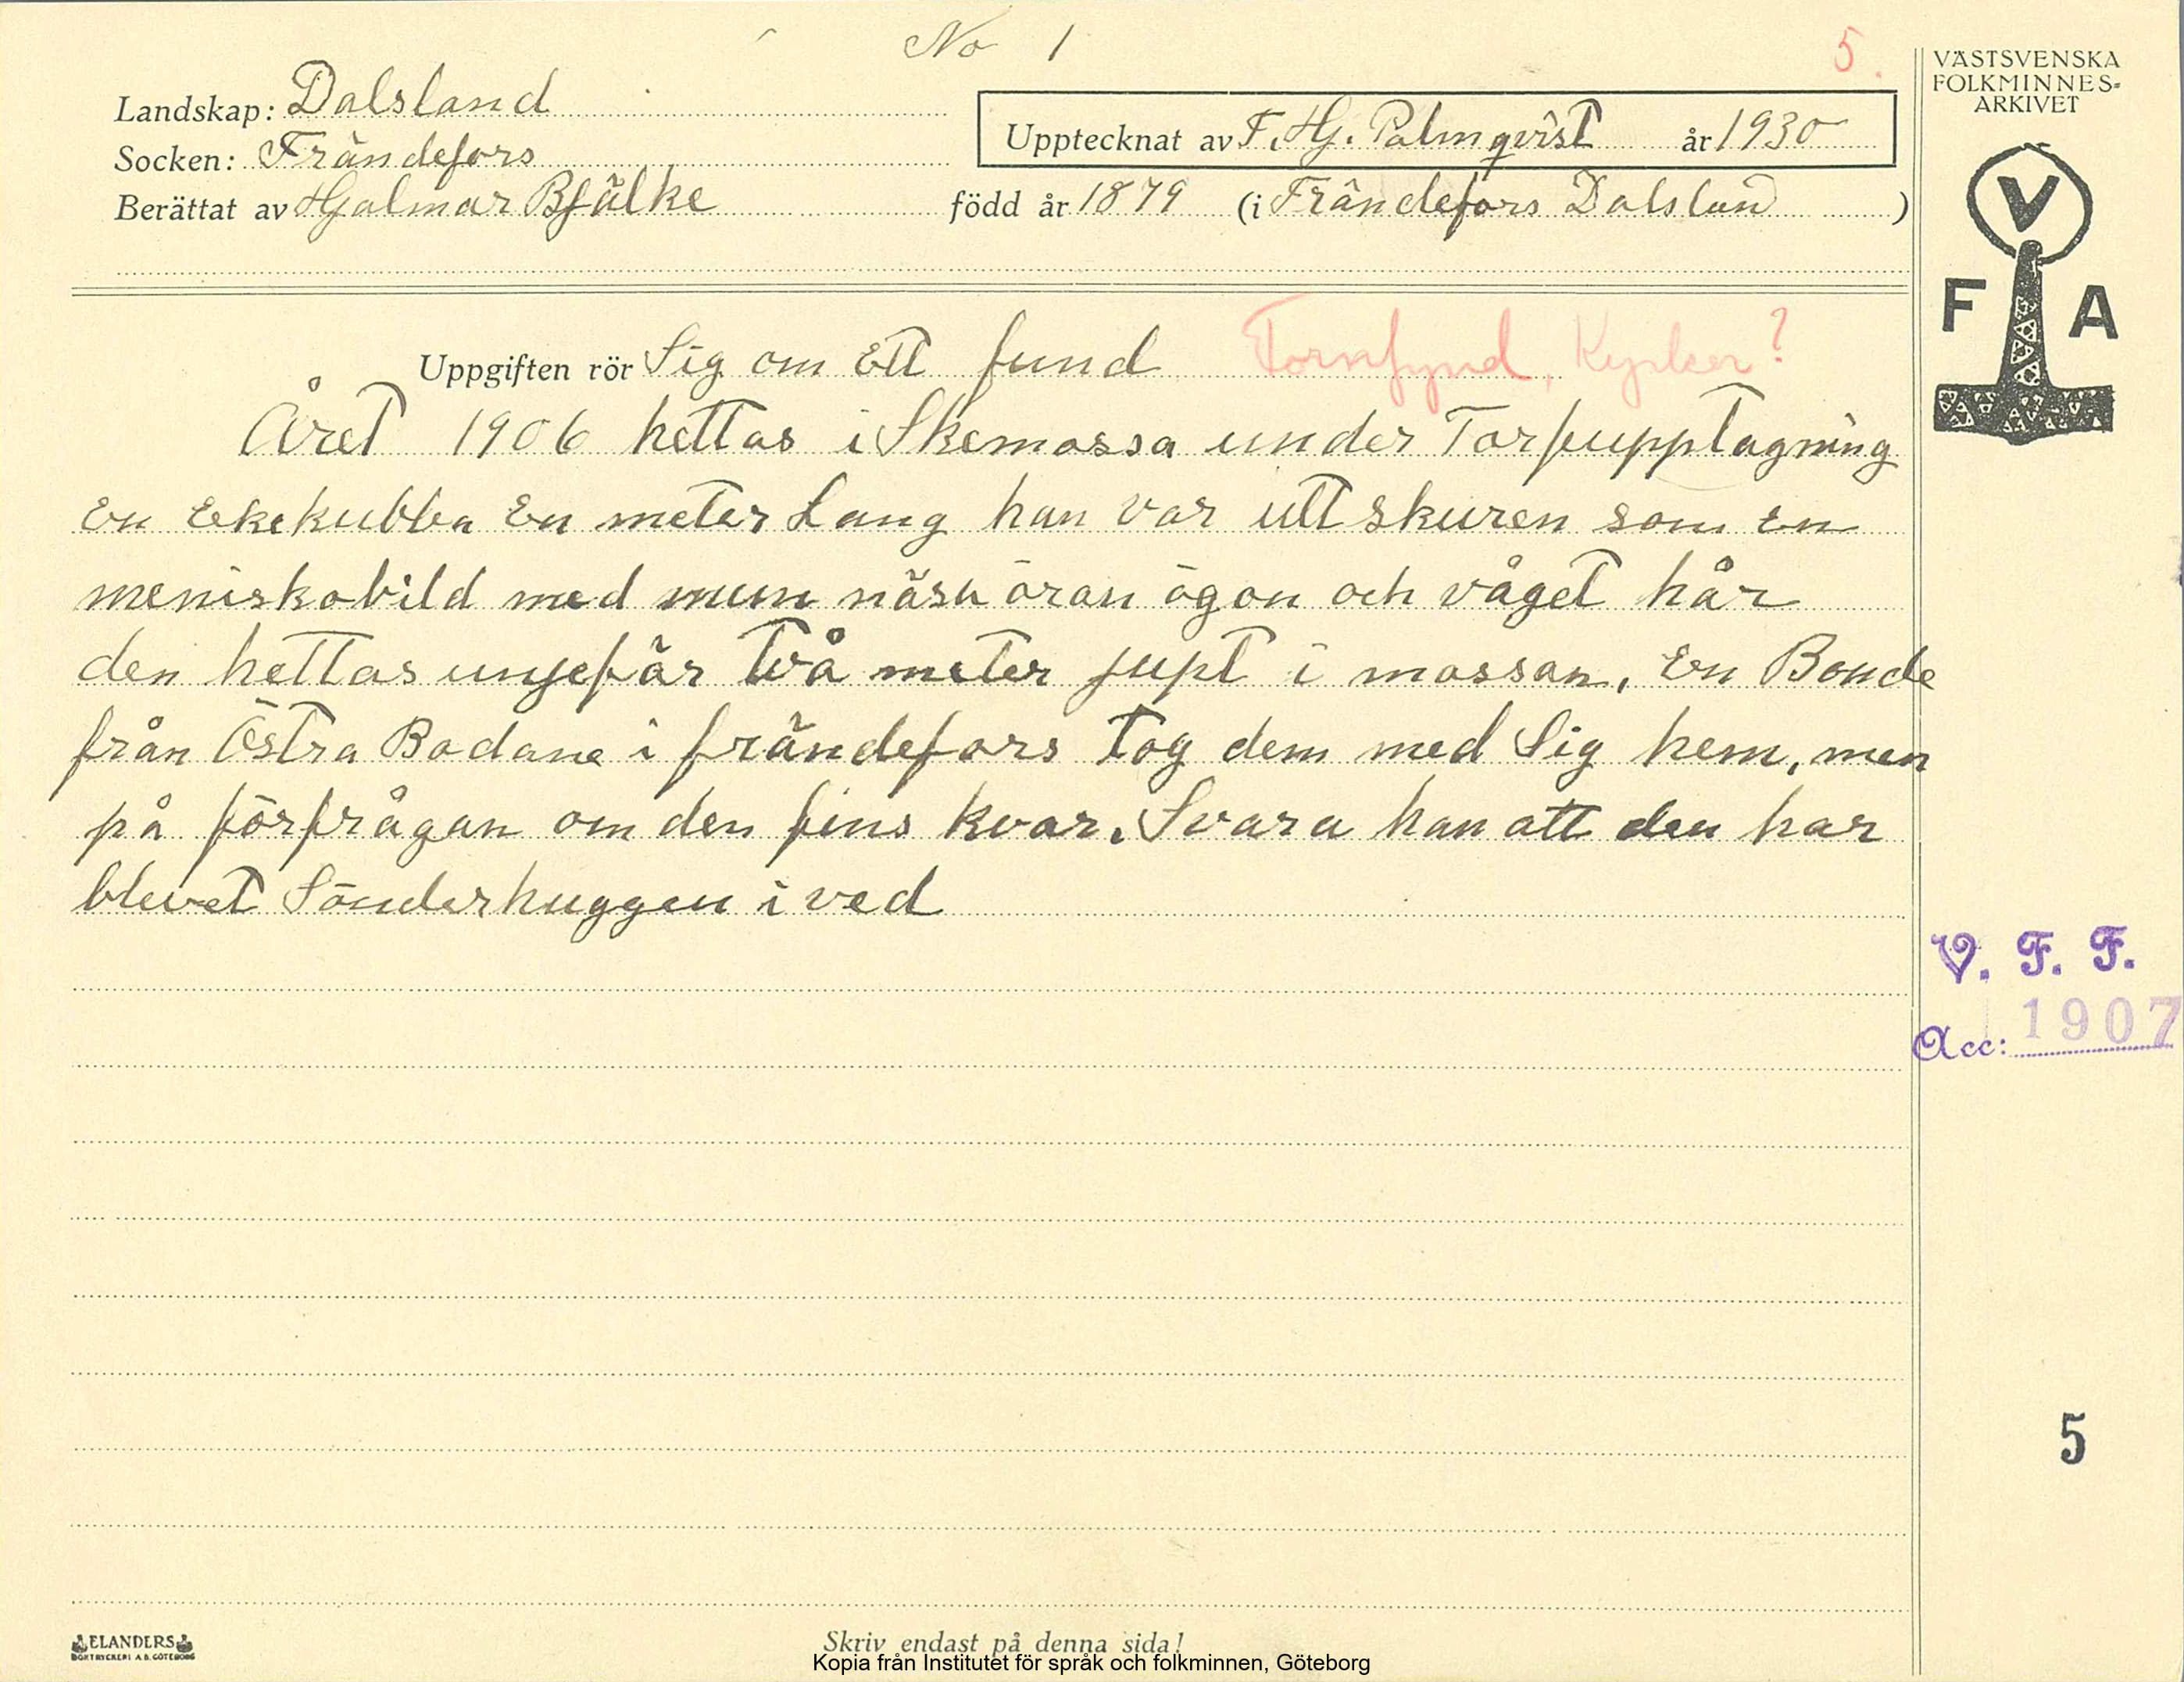 No 1
5.
VÄSTSVENSKA
FOLKMINNES-
ARKIVET
Landskap: Dalsland
Upptecknat av F. Hj. Palmqvist år 1930
Socken: Frändefors
Berättat av Hjalmar Bjälke född år 1879 (i Frändefors Dalslan )
V
F A
Uppgiften rör Sig om Ett fund Fornfynd, Kyrkor?
Året 1906 hettas i Skemossa under Torfupptagning
En Ekekubba En meter Lang han var utt skuren som en
meniskobild med mun näsa öron ögon och våget hår
den hettas unjefär två meter jupt i mossan, En Bonde
från Östra Bodane i frändefors tog dem med Sig hem, men
på förfrågan om den fins kvar. Svara han att den har
blevet Sönderhuggen i ved
V. F. F.
Acc: 1907
5
ELANDERS
BOKTRYCKERI A.B. GÖTEBORG
Skriv endast på denna sida!
Kopia från Institutet för språk och folkminnen, Göteborg